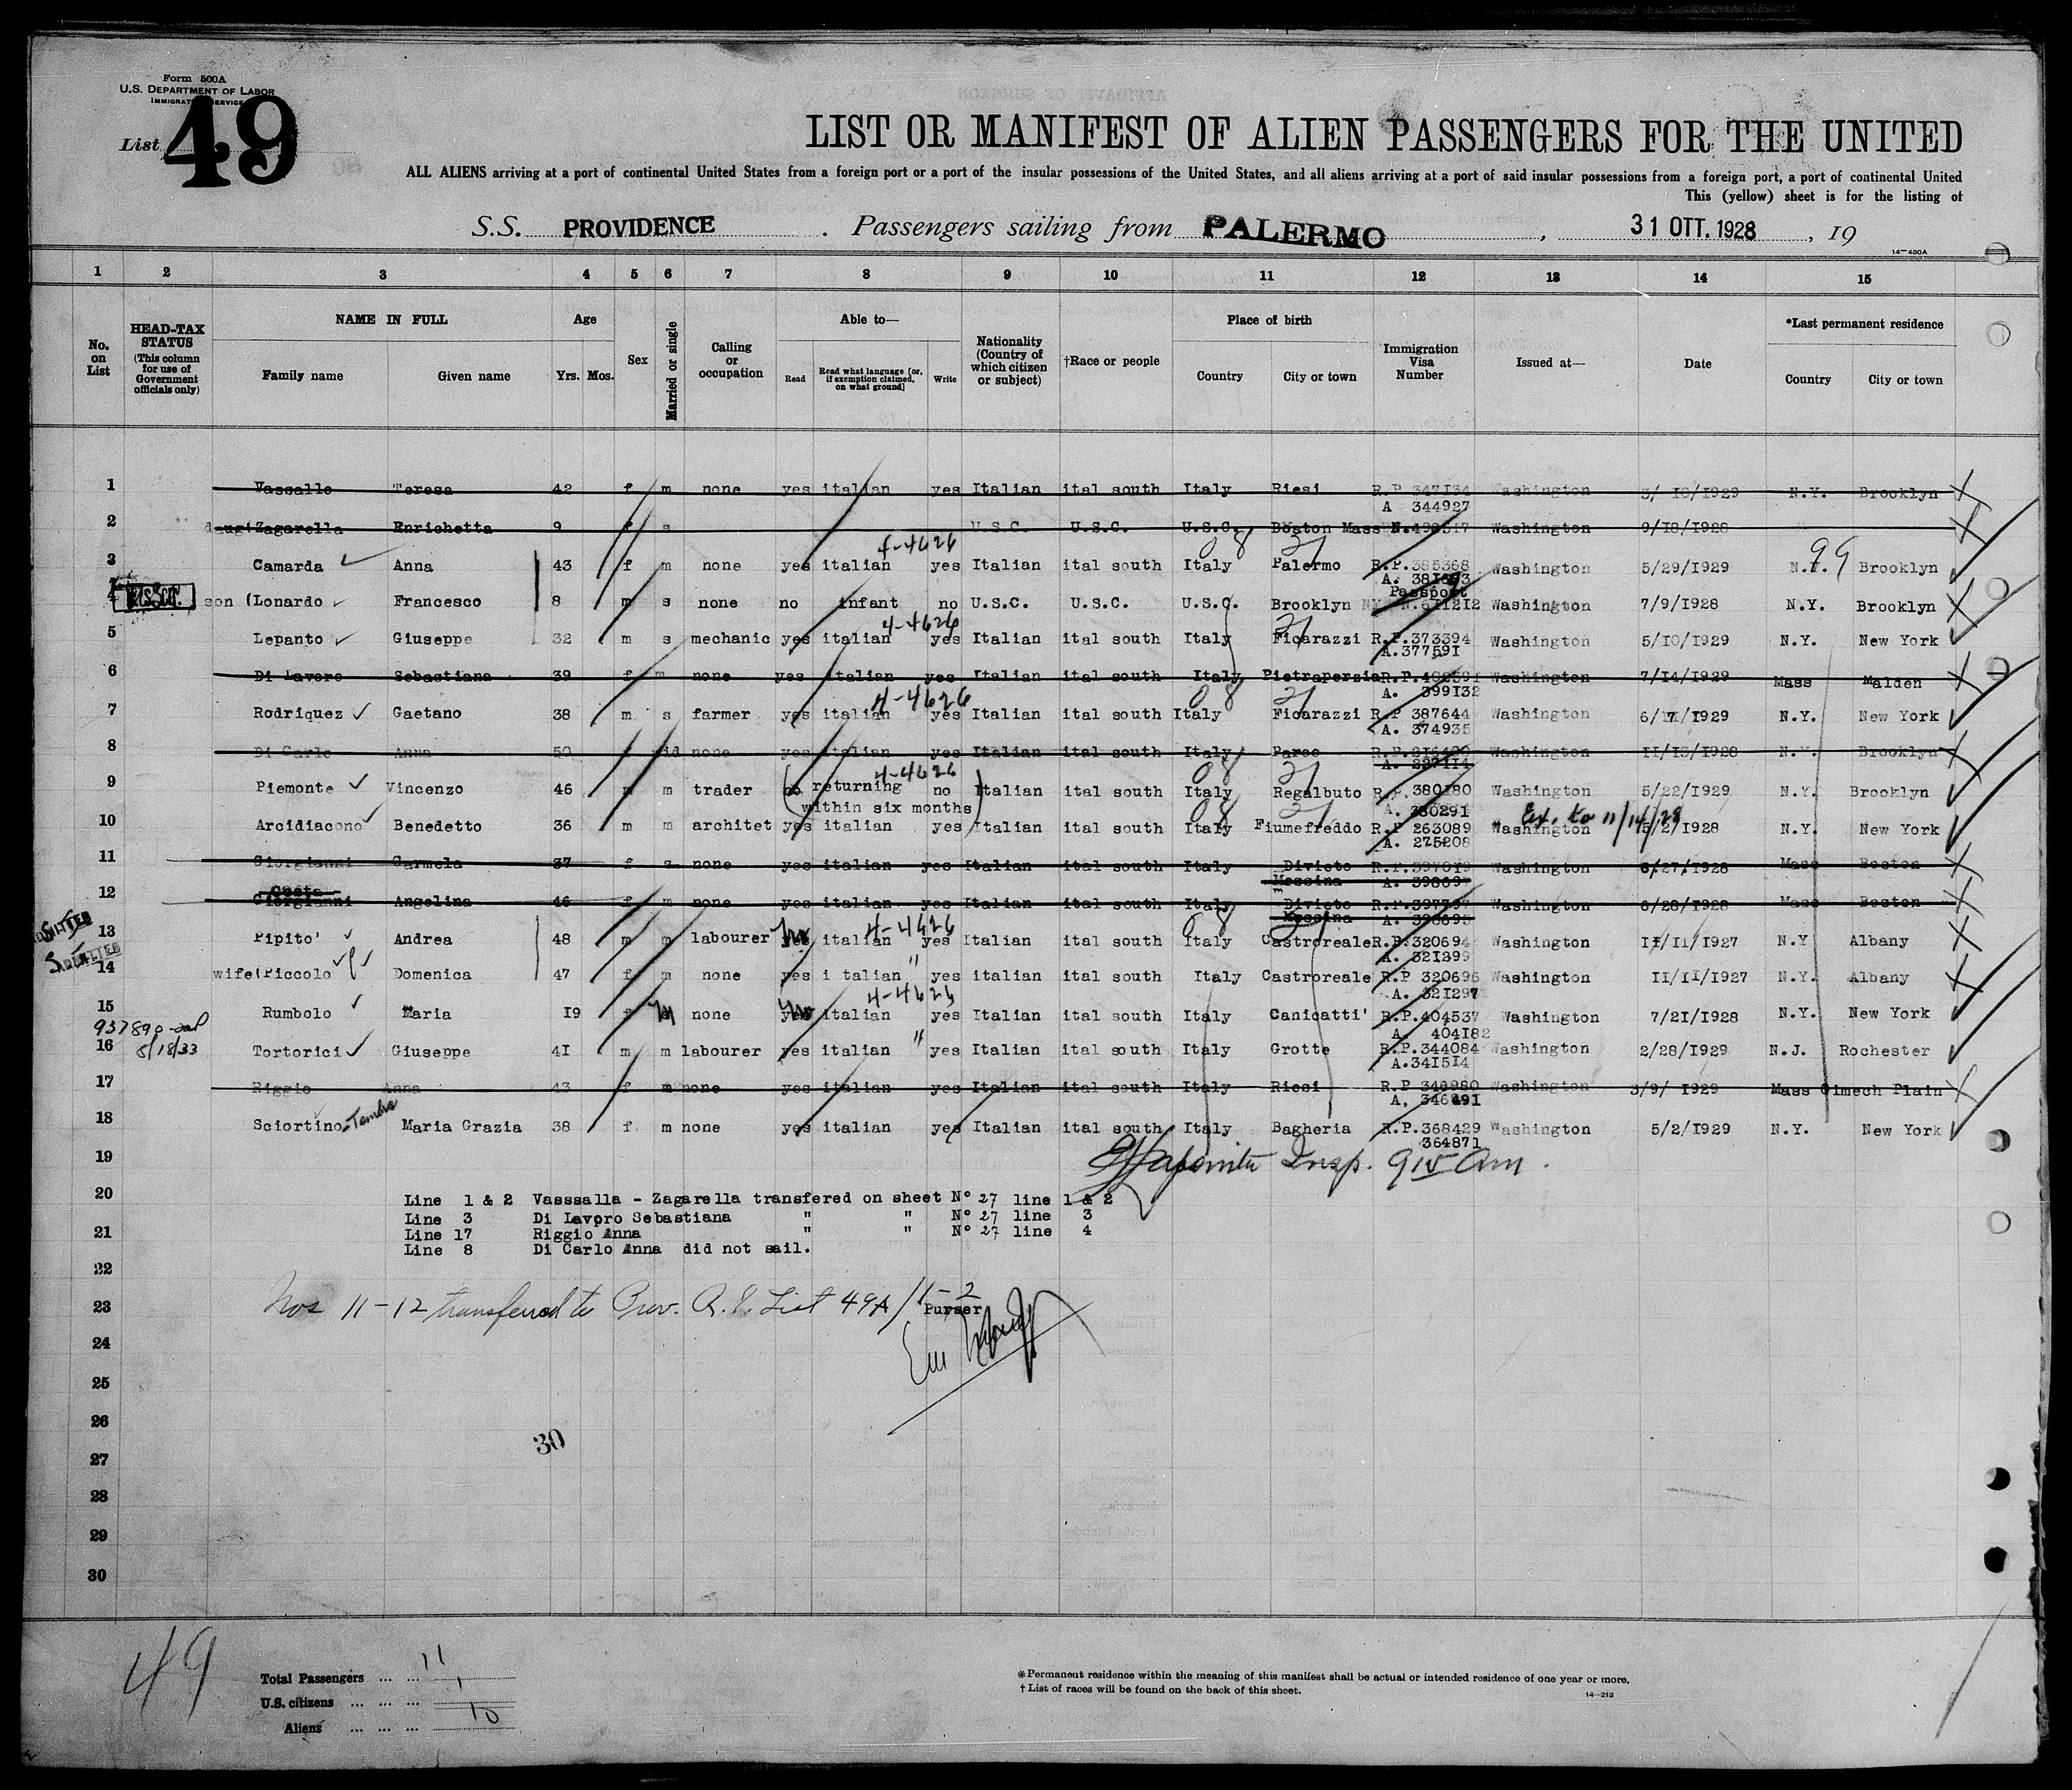 Form 500A
U.S. DEPARTMENT OF LABOR
IMMIGRATION SERVICE
List 49
LIST OR MANIFEST OF ALIEN PASSENGERS FOR THE UNITED
ALL ALIENS arriving at a port of continental United States from a foreign port or a port of the insular possessions of the United States, and all aliens arriving at a port of said insular possessions from a foreign port, a port of continental United
This (yellow) sheet is for the listing of
S.S. PROVIDENCE . Passengers sailing from PALERMO , 31 OTT. 1928 , 19
14-480A
1 2 3 4 5 6 7 8 9 10 11 12 13 14 15
No. on List
HEAD-TAX STATUS (This column for use of Government officials only)
NAME IN FULL Family name Given name
Age Yrs. Mos.
Sex
Married or single
Calling or occupation
Able to— Read Read what language [or, if exemption claimed, on what ground] Write
Nationality (Country of which citizen or subject)
†Race or people
Place of birth Country City or town
Immigration Visa Number
Issued at—
Date
*Last permanent residence Country City or town
1 Vassallo Teresa 42 f m none yes italian yes Italian ital south Italy Riesi R.P 347134 Washington 3/ 10/1929 N.Y. Brooklyn
A 344927
2 daug(Zagarella Enrichetta 9 f s U.S.C. U.S.C. U.S.C. Boston Mass Washington 9/18/1928
4-4626
3 Camarda Anna 43 f m none yes italian yes Italian ital south Italy Palermo R.P.385368 Washington 5/29/1929 N.Y. Brooklyn
Passport
4 son (Lonardo Francesco 8 m s none no infant no U.S.C. U.S.C. U.S.C. Brooklyn NY N.611212 Washington 7/9/1928 N.Y. Brooklyn
4-4626
5 Lepanto Giuseppe 32 m s mechanic yes italian yes Italian ital south Italy Ficarazzi R.P.373394 Washington 5/10/1929 N.Y. New York
A.377591
6 Di Lavoro Sebastiana 39 f m none yes italian yes Italian ital south Italy Pietraperzia Washington 7/14/1929 Mass Malden
A. 399132
4-4626
7 Rodriquez Gaetano 38 m s farmer yes italian yes Italian ital south Italy Ficarazzi R.P 387644 Washington 6/ /1929 N.Y. New York
A. 374935
8 Di Carlo Anna 50 f id none yes italian yes Italian ital south Italy Parco Washington 11/13/1928 N.Y. Brooklyn
4-4626
9 Piemonte Vincenzo 46 m m trader no (returning within six months) no Italian ital south Italy Regalbuto R.P. 380180 Washington 5/22/1929 N.Y. Brooklyn
A. 380291
Ex. to 11/14/28
10 Arcidiacono Benedetto 36 m m architet yes italian yes Italian ital south Italy Fiumefreddo R.P 263089 Washington 5/2/1928 N.Y. New York
A. 275208
11 Giorgianni Carmela 37 f s none yes italian yes Italian ital south Italy Divieto Messina Washington 6/27/1928 Mass Boston
Costa
12 Giorgianni Angelina 46 f m none yes italian yes Italian ital south Italy Divieto Messina Washington 6/28/1928 Mass Boston
ADMITTED
4-4626
13 Pipito' Andrea 48 m m labourer yes italian yes Italian ital south Italy Castroreale R.P.320694 Washington 11/11/1927 N.Y Albany
A. 321299
ADMITTED
14 wife(Piccolo Domenica 47 f m none yes i talian " yes italian ital south Italy Castroreale R.P 320696 Washington 11/11/1927 N.Y. Albany
A. 321297
4-4626
15 Rumbolo Maria 19 f none yes italian yes Italian ital south Italy Canicatti' R.P.404537 Washington 7/21/1928 N.Y. New York
A 404182
937890
8/18/33
16 Tortorici Giuseppe 41 m m labourer yes italian " yes Italian ital south Italy Grotte R.P.344084 Washington 2/28/1929 N.J. Rochester
A.341514
17 Riggio Anna 43 f m none yes italian yes Italian ital south Italy Riesi R.P 346980 Washington 3/9/ 1929 Mass Plain
A. 346491
18 Sciortino Maria Grazia 38 f m none yes italian yes Italian ital south Italy Bagheria R.P.368429 Washington 5/2/1929 N.Y. New York
364871
19
Insp. 9 15 Am.
20 Line 1 & 2 Vasssalla - Zagarella transfered on sheet N° 27 line 1 & 2
Line 3 Di Lavoro Sebastiana " " N° 27 line 3
21 Line 17 Riggio Anna " " N° 27 line 4
Line 8 Di Carlo Anna did not sail.
22
23 Nos 11-12 transferred to Prov. List 49A/1-2
Purser
24
25
26
30
27
28
29
30
49
Total Passengers ... ... 11
U.S. citizens ... ... ... 1
Aliens ... ... ... 10
*Permanent residence within the meaning of this manifest shall be actual or intended residence of one year or more.
†List of races will be found on the back of this sheet.
14-213